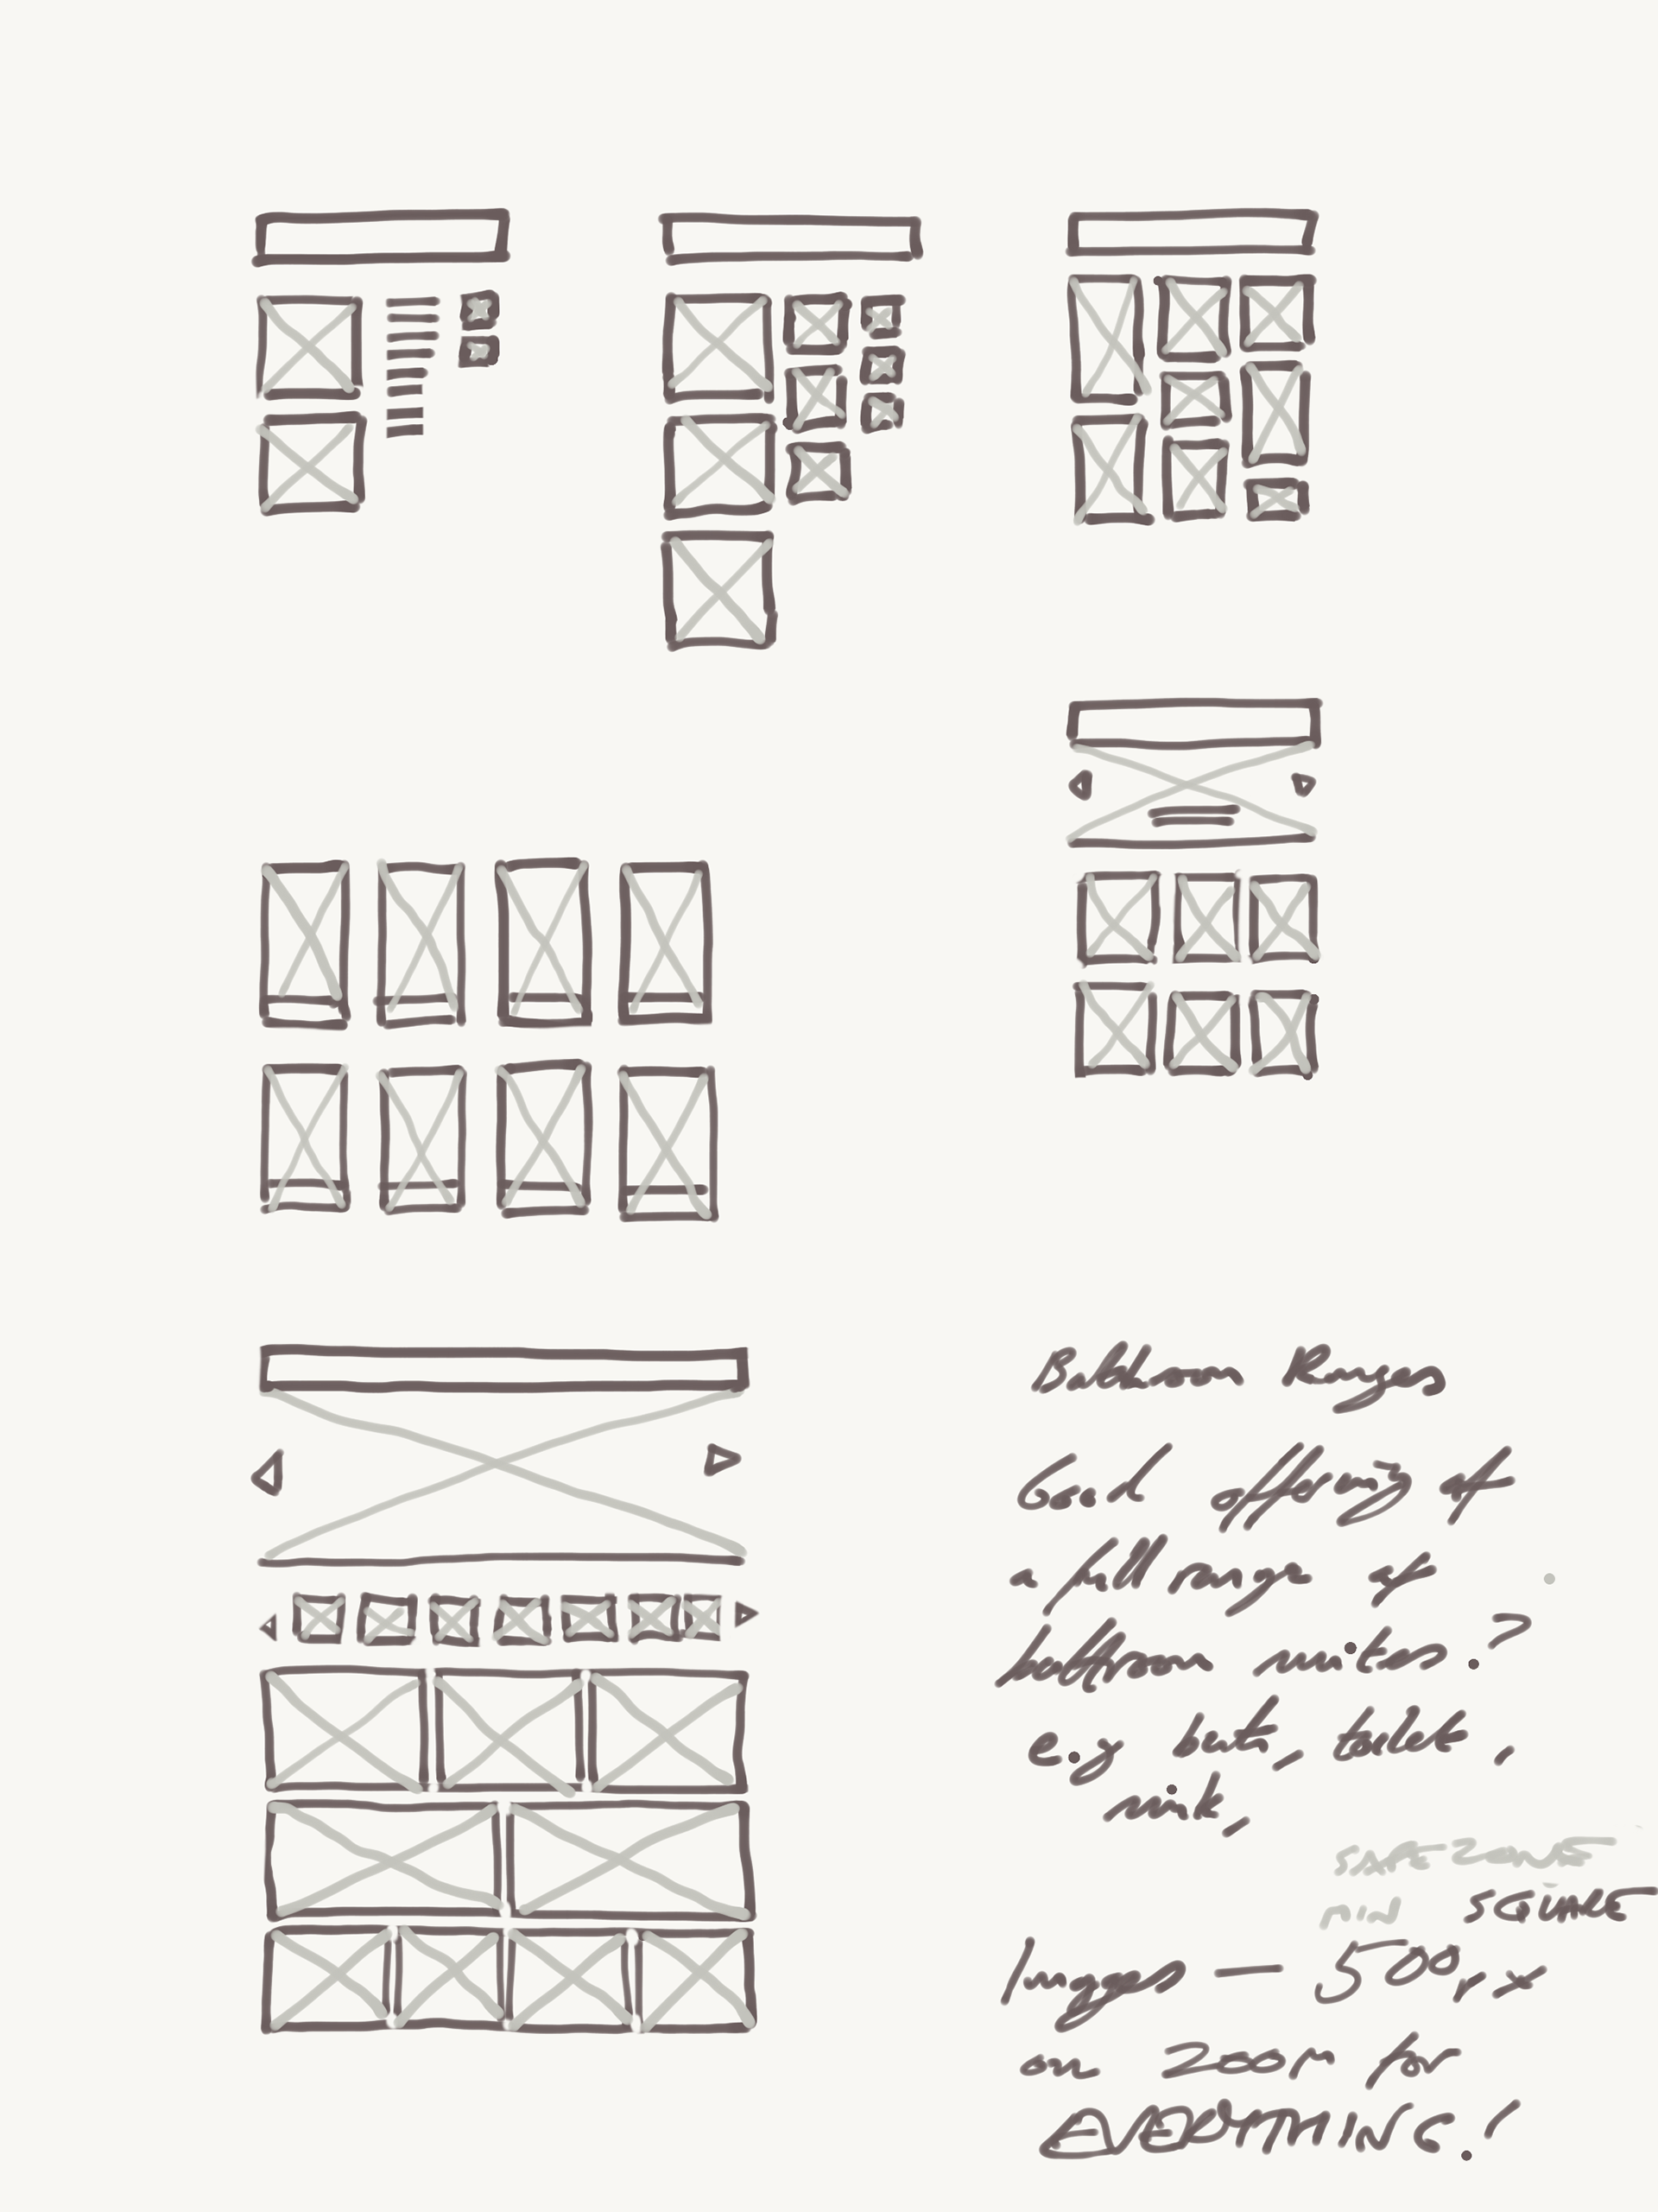 Bathroom Ranges
Good offering of
a full range of
bathroom suites.?
e.g bath, toilet,
sink,
SAFE ZONE
MIN SQUARE
Images — 500px
on zoom for
EVERYTHING!